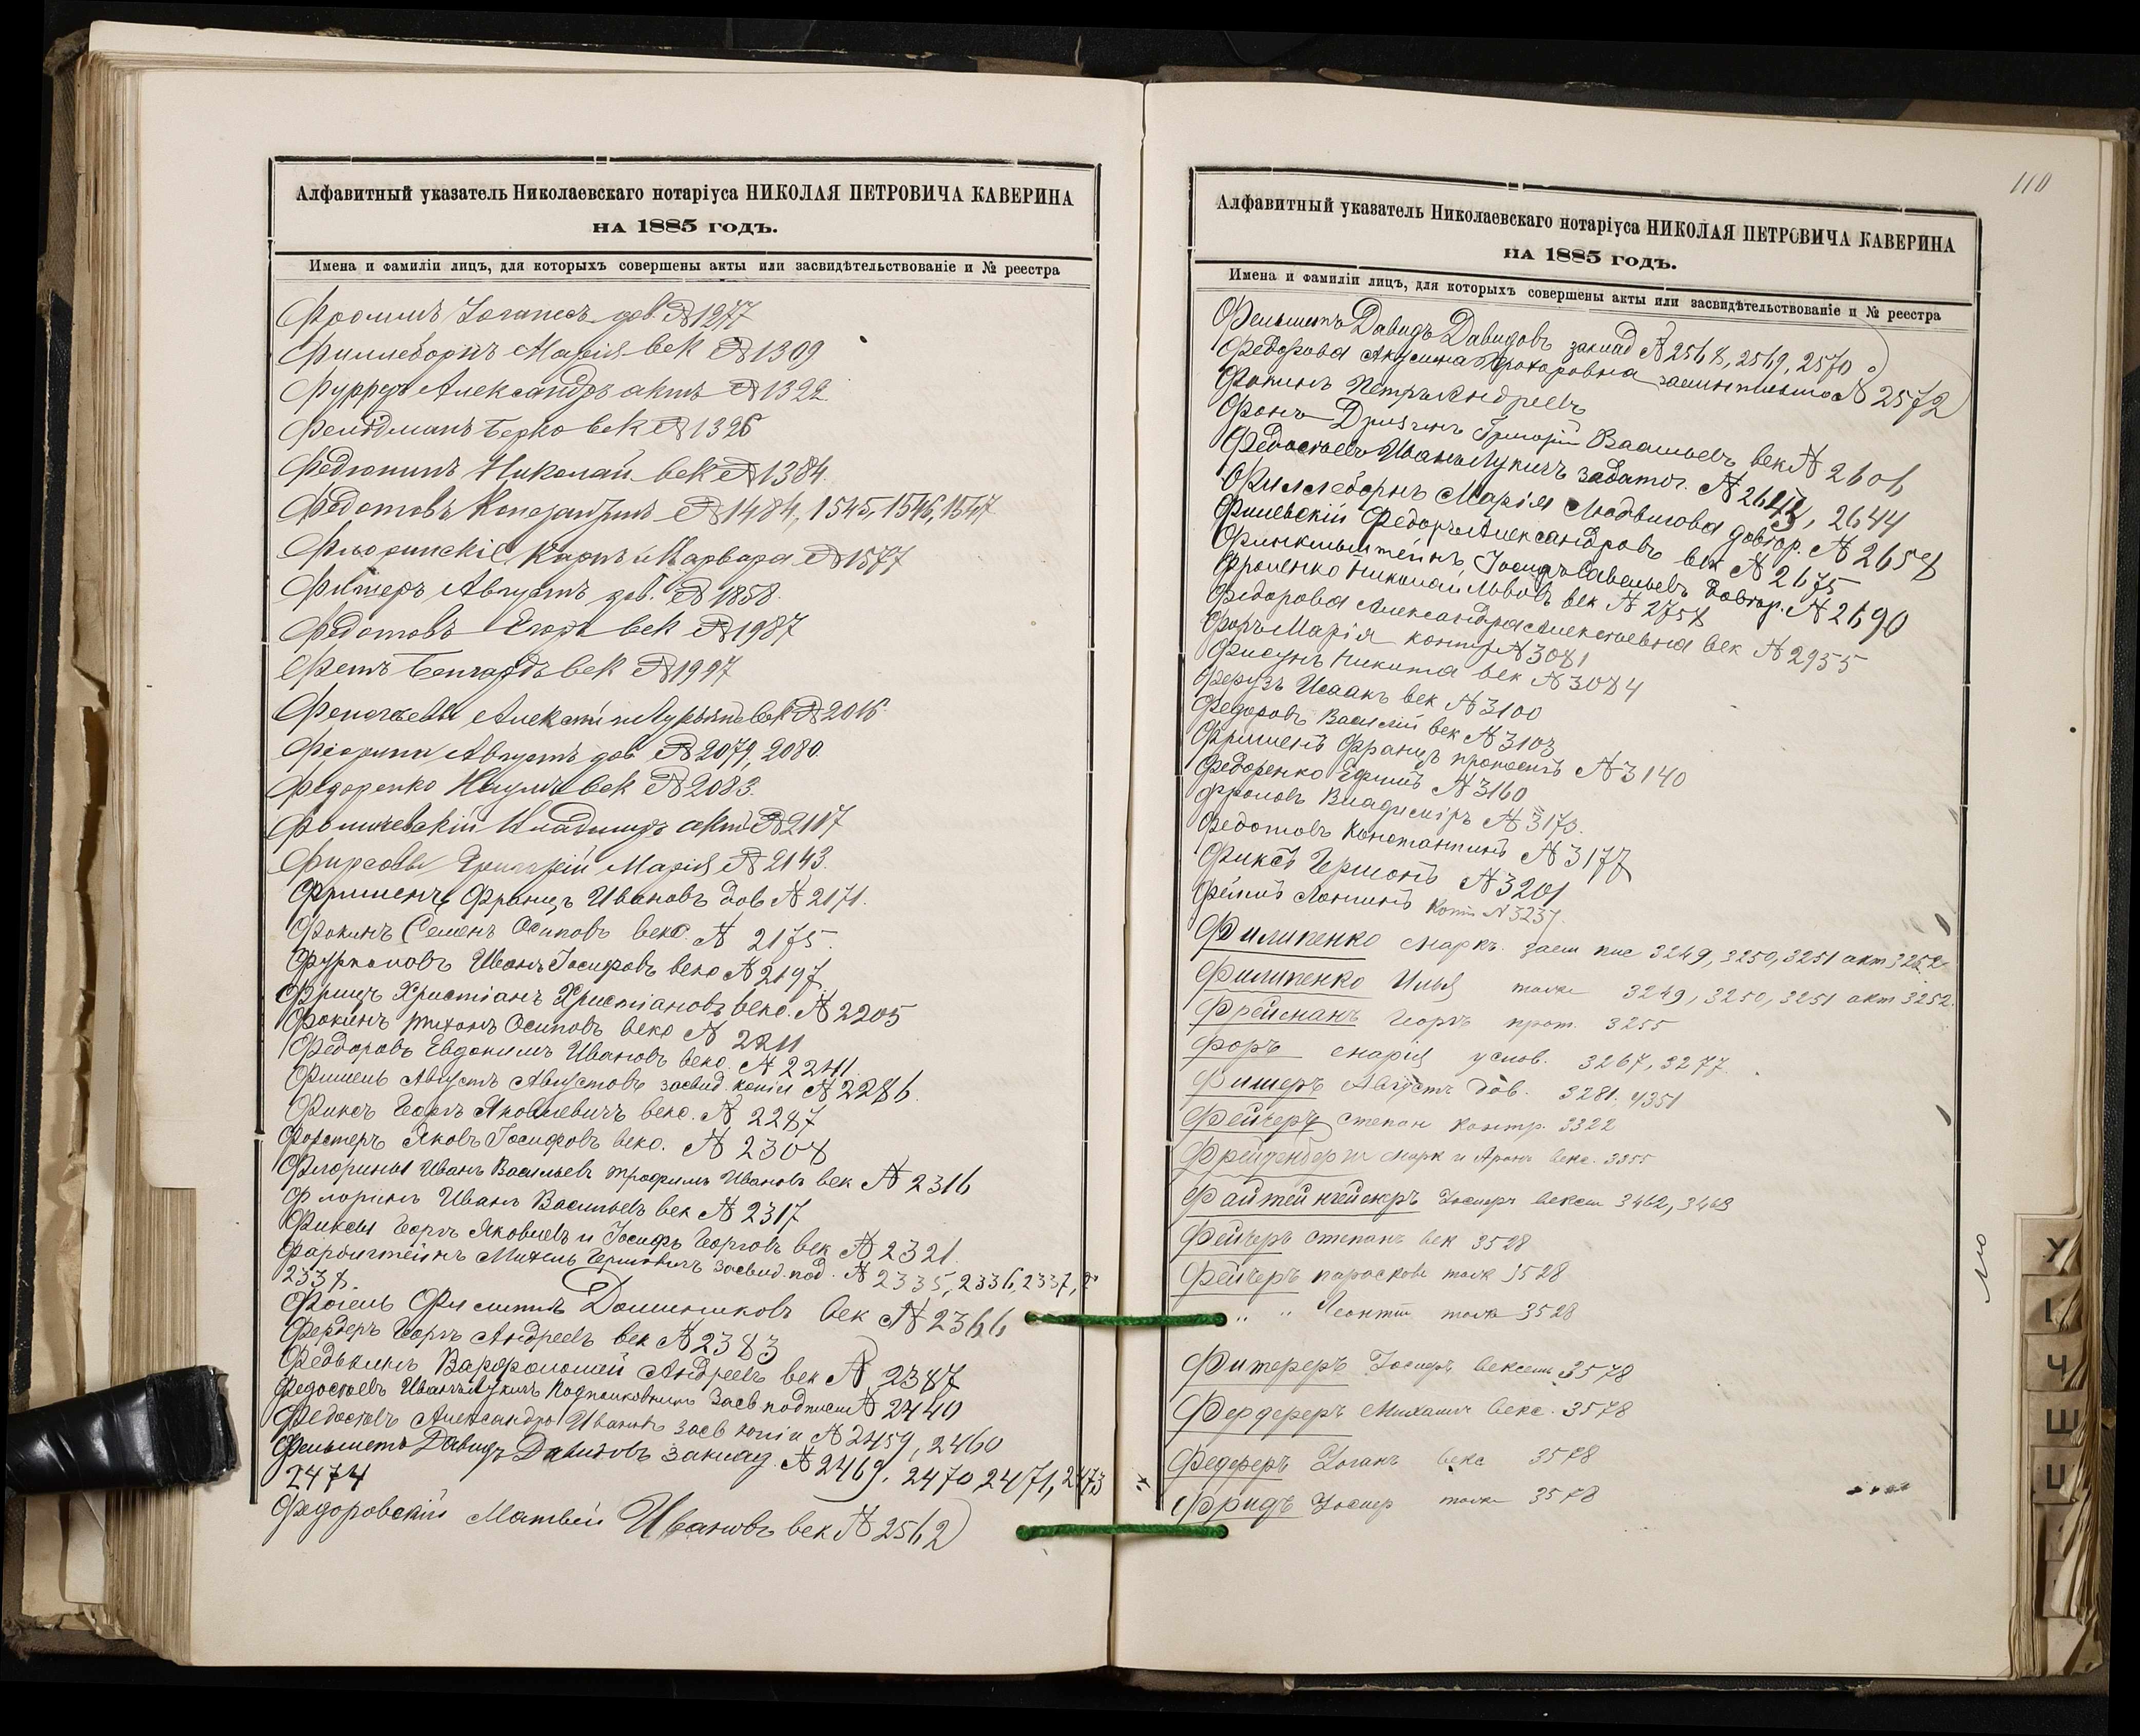 Алфавитный указатель Николаевскаго нотаріуса НИКОЛАЯ ПЕТРОВИЧА КАВЕРИНА
НА 1885 ГОДЪ.
Имена и фамиліи лицъ, для которыхъ совершены акты или засвидѣтельствованіе и № реестра
дов. № 1277
Филлеборнъ Марія век № 1309
Фурреръ Александръ актъ № 1322
Фельдманъ Берко век № 1326
Федюнинъ Николай век № 1384
Федотовъ Константинъ № 1484, 1545, 1546, 1547
Карпъ и Варвара № 1577
Фишеръ Августъ дов. № 1858
Федотовъ Егоръ век № 1987
Фетъ век № 1997
Алексѣй и век № 2016
Августъ дов № 2079, 2080
Федоренко Наумъ век № 2083
Владиміръ актъ № 2117
Фирсовы Григорій Марія № 2143
Фришенъ Францъ Ивановъ дов № 2171.
Фокинъ Семенъ Осиповъ векс. № 2175.
Иванъ Іосифовъ векс № 2197
Фрицъ Христіанъ Христіановъ векс. № 2205
Фокинъ Тихонъ Осиповъ векс № 2211
Федоровъ Евдокимъ Ивановъ векс. № 2241.
Августъ Августовъ засвид. копіи № 2286.
Фиксъ Георгъ Яковлевичъ векс. № 2287
Форстеръ Яковъ Іосифовъ векс. № 2308
Флорины Иванъ Васильевъ Трофимъ Ивановъ век № 2316
Флоринъ Иванъ Васильевъ век № 2317
Фиксы Георгъ Яковлевъ и Іосифъ Георговъ век № 2321.
засвид. под. № 2335, 2336, 2337,
2338.
Фогель век № 2366
Фердеръ Георгъ Андреевъ век № 2383
Федькинъ Варфоломей Андреевъ век № 2387
Федосѣевъ Иванъ Лукичъ засв подписи № 2440
Федосѣевъ Александръ Ивановъ засв копіи № 2459, 2460
Давидъ Давидовъ заклад. № 2469, 2470 2471, 2473
2474
Федоровскій Матвѣй Ивановъ век № 2562
110
Алфавитный указатель Николаевскаго нотаріуса НИКОЛАЯ ПЕТРОВИЧА КАВЕРИНА
НА 1885 ГОДЪ.
Имена и фамиліи лицъ, для которыхъ совершены акты или засвидѣтельствованіе и № реестра
Давидъ Давидовъ заклад № 2568, 2569, 2570
Федорова Акулина Прохоровна № 2572
Фокинъ Петръ Андреевъ
Фонъ Григорій Васильевъ век № 2606
Федосѣевъ Иванъ Лукичъ задаточ. № 2643, 2644
Филлеборнъ Марія Людвигова довѣр. № 2658
Филевскій Федоръ Александровъ век № 2675
Финкельштейнъ Іосифъ Савельевъ довѣр. № 2690
Фроленко Николай Львовъ век № 2758
Федорова Александра Алексѣевна век № 2955
Форъ Марія контр № 3081
Фисунъ Никита век № 3084
Ферузъ Исаакъ век № 3100
Федоровъ Василій век № 3103
Фришенъ Францъ протестъ № 3140
Федоренко Ефимъ № 3160
Фроловъ Владиміръ № 3173.
Федотовъ Константинъ № 3177
Фиксъ № 3201
№ 3237.
Филипенко Маркъ. заем пис 3249, 3250, 3251 акт 3252
Филипенко Илья тоже 3249, 3250, 3251 акт 3252.
Фрейманъ Георгъ прот. 3255
Форъ Марія услов. 3267, 3277.
Фишеръ Августъ дов. 3281. 4351
Фейгеръ Степан контр. 3322
Марк и Аронъ векс. 3355
Іосифъ вексел 3462, 3463
Фейгеръ Степанъ век 3528
Фейгеръ Параскове тоже 3528
" " Леонтій тоже 3528
Фитереръ Іосифъ вексель 3578
Фердереръ Михаилъ векс. 3578
Федереръ Іоганъ векс 3578
Фридъ Іосиф тоже 3578
У
І
Ч
Ш